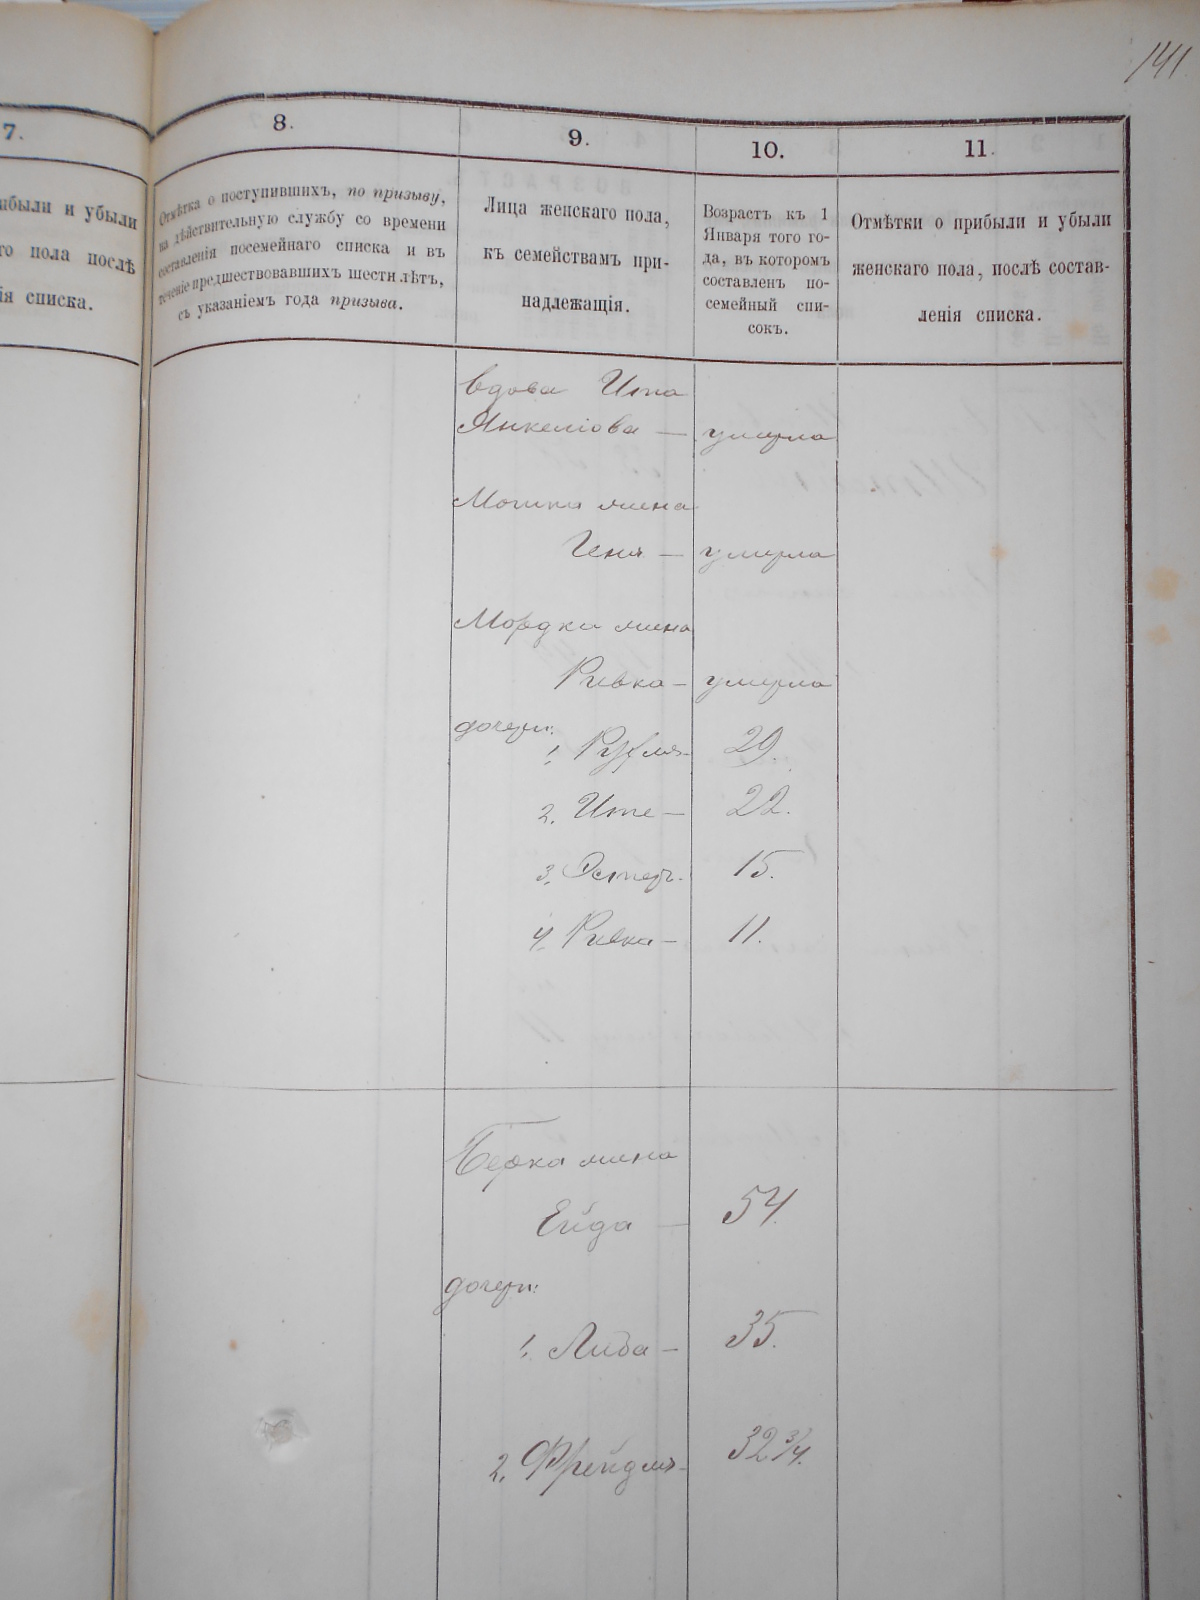 141
7.
8.
9.
10.
11.
ибыли и убыли
го пола послѣ
ія списка.
Отмѣтка о поступившихъ, по призыву,
на дѣйствительную службу со времени
составленія посемейнаго списка и въ
теченіе предшествовавшихъ шести лѣтъ,
съ указаніемъ года призыва.
Лица женскаго пола,
къ семействамъ при-
надлежащія.
Возрастъ къ 1
Января того го-
да, въ которомъ
составленъ по-
семейный спи-
сокъ.
Отмѣтки о прибыли и убыли
женскаго пола, послѣ состав-
ленія списка.
вдова Ита
Янкеліова — умерла
Мошка жена
Геня — умерла
Мордка жена
Ривка — умерла
дочери:
1. Рухля 29.
2. Ите — 22.
3. Эстеръ 15.
4. Ривка — 11.
Берка жена
Ейда — 54.
дочери:
1. Либа — 35.
2. Фрейдля 32 3/4.